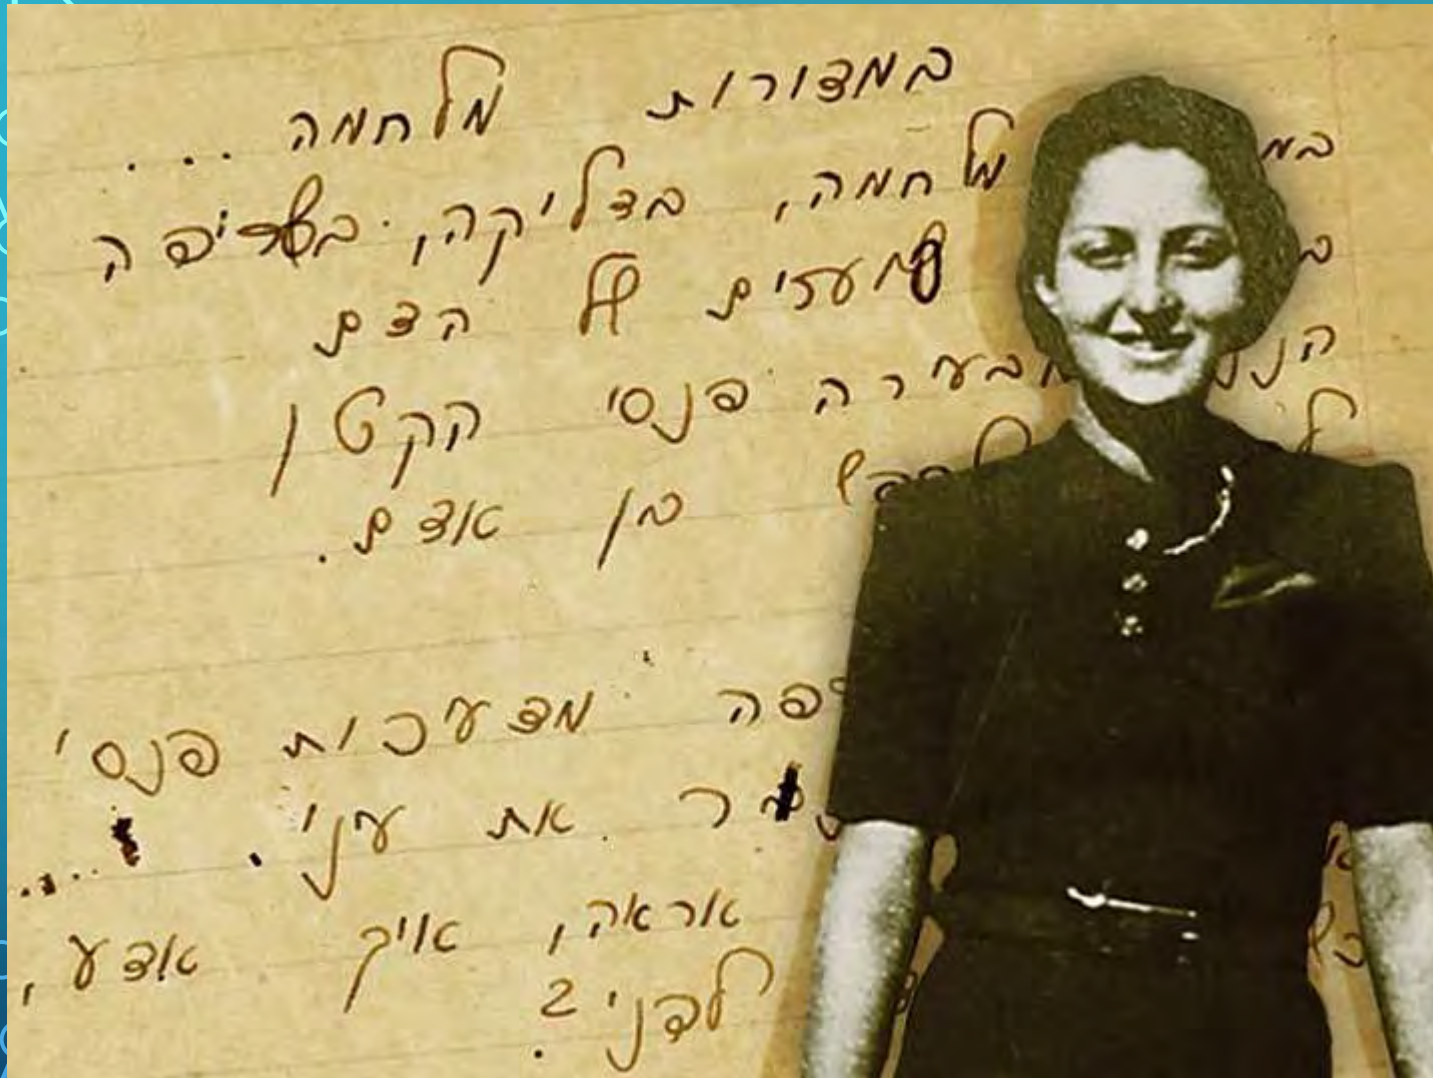 במדורות מלחמה ....
מלחמה, בדליקה, בשריפה
של הדם
מבעירה פנסי הקטן
בן אדם.
מדעכות פנסי
את עיני. ....
אראה, איך אדע,
לפני?